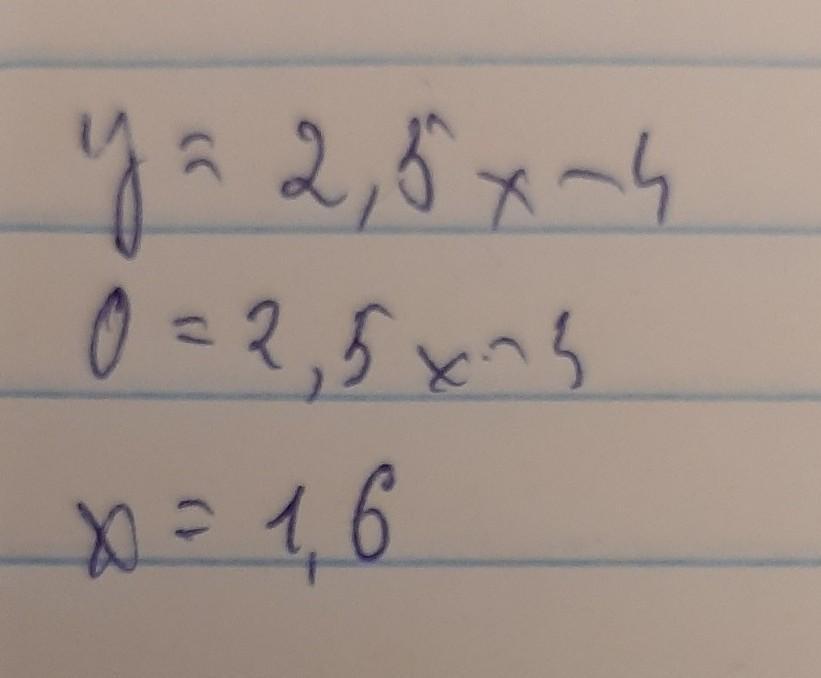 y = 2,5x-4
0 = 2,5x-4
x = 1,6